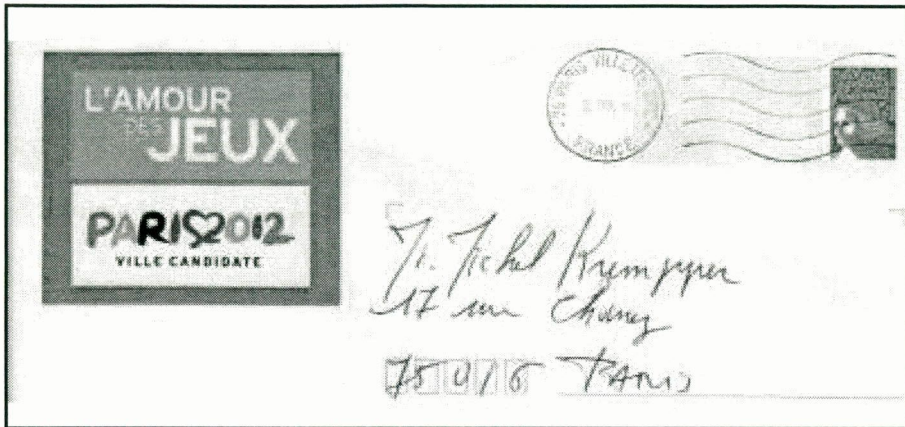 L'AMOUR
DES
JEUX
PARIS2012
VILLE CANDIDATE
FRANCE
M. Michel Krempper
17 rue Chanez
75016 PARIS